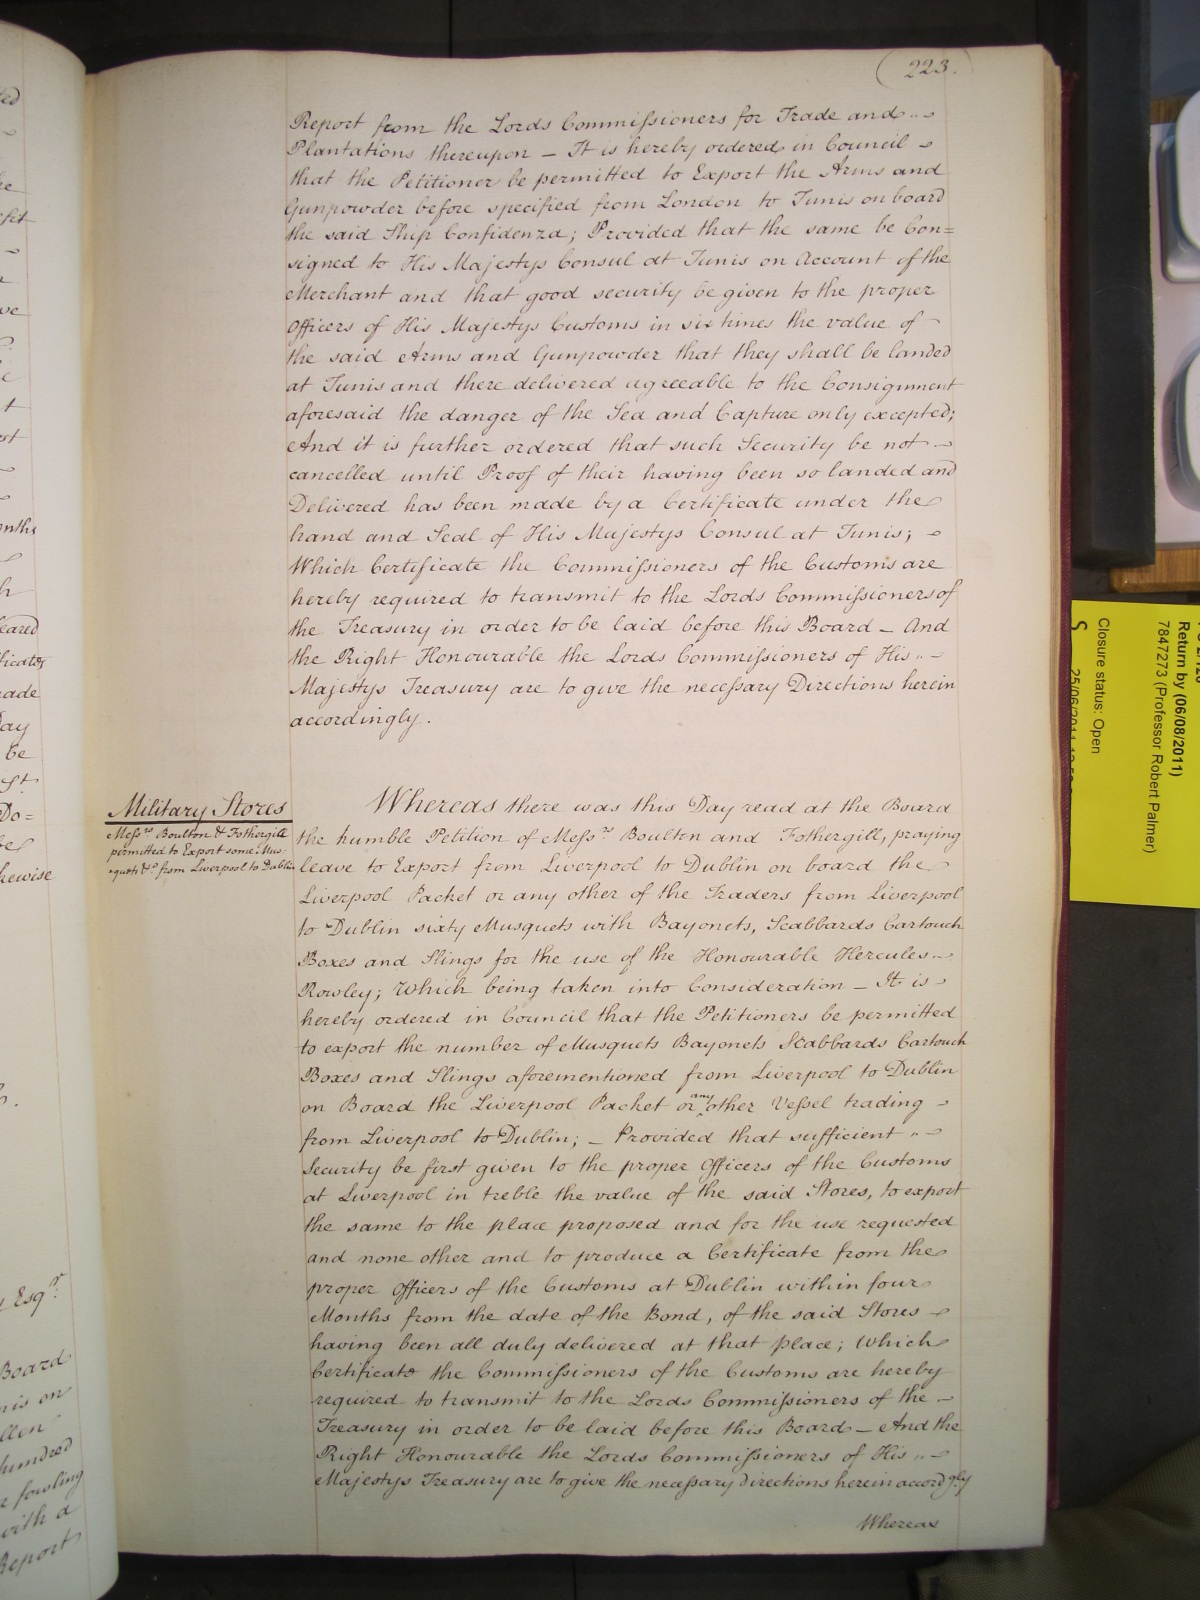 223.
Report from the Lords Commissioners for Trade and
Plantations thereupon – It is hereby ordered in Council
that the Petitioner be permitted to Export the Arms and
Gunpowder before specified from London to Tunis on board
the said Ship Confidenza; Provided that the same be Con=
signed to His Majestys Consul at Tunis on Account of the
Merchant and that good security be given to the proper
Officers of His Majestys Customs in six times the value of
the said Arms and Gunpowder that they shall be landed
at Tunis and there delivered agreeable to the Consignment
aforesaid the danger of the Sea and Capture only excepted;
And it is further ordered that such Security be not
cancelled until Proof of their having been so landed and
Delivered has been made by a Certificate under the
hand and Seal of His Majestys Consul at Tunis;
Which Certificate the Commissioners of the Customs are
hereby required to transmit to the Lords Commissioners of
the Treasury in order to be laid before this Board – And
the Right Honourable the Lords Commissioners of His
Majestys Treasury are to give the necessary Directions herein
accordingly.
Military Stores
Messrs Boulton & Fothergill
permitted to Export some Mus-
quets &c from Liverpool to Dublin
Whereas there was this Day read at the Board
the humble Petition of Messrs Boulton and Fothergill, praying
leave to Export from Liverpool to Dublin on board the
Liverpool Packet or any other of the Traders from Liverpool
to Dublin sixty Musquets with Bayonets, Scabbards Cartouch
Boxes and Slings for the use of the Honourable Hercules
Rowley; Which being taken into Consideration – It is
hereby ordered in Council that the Petitioners be permitted
to export the number of Musquets Bayonets Scabbards Cartouch
Boxes and Slings aforementioned from Liverpool to Dublin
on Board the Liverpool Packet or any other Vessel trading
from Liverpool to Dublin; – Provided that sufficient
Security be first given to the proper Officers of the Customs
at Liverpool in treble the value of the said Stores, to export
the same to the place proposed and for the use requested
and none other and to produce a Certificate from the
proper Officers of the Customs at Dublin within four
Months from the date of the Bond, of the said Stores
having been all duly delivered at that place; Which
Certificate the Commissioners of the Customs are hereby
required to transmit to the Lords Commissioners of the
Treasury in order to be laid before this Board – And the
Right Honourable the Lords Commissioners of His
Majestys Treasury are to give the necessary directions herein accordgly
Whereas
Return by (06/08/2011)
7847273 (Professor Robert Palmer)
Closure status: Open
kewise
Esqr.
Board
hundred
fowling
with a
Report